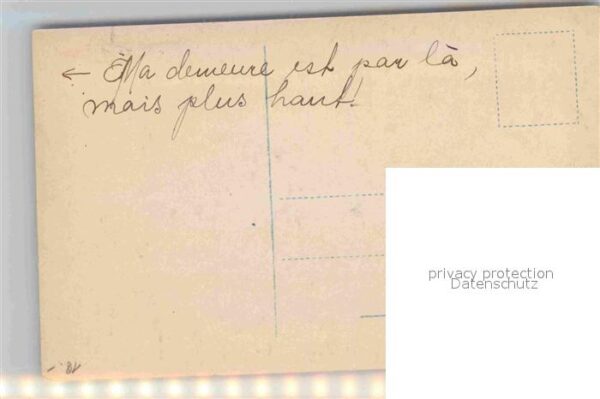 ← Ma demeure est par là,
mais plus haut!
privacy protection
Datenschutz